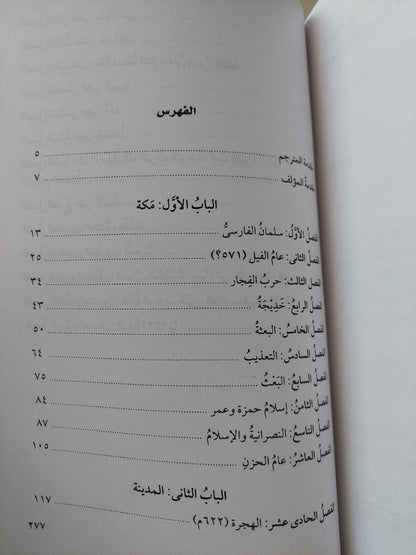 الفهرس
مقدمة المترجم ٥
مقدمةُ المؤلف ٧
البابُ الأوَّل: مَكة
الفصلُ الأوَّلُ: سلمانُ الفارسىُّ ١٣
الفصلُ الثانى: عامُ الفيل (٥٧١؟) ٢٥
الفصلُ الثالث: حربُ الفِجار ٣٤
الفصلُ الرابعُ: خَدِيجَةُ ٤٣
الفصلُ الخامسُ: البعثةُ ٥٠
الفصلُ السادسُ: التعذيبُ ٦٤
الفصلُ السابعُ: البَعْثُ ٧٥
الفصلُ الثامنُ: إسلامُ حمزة وعمر ٨٤
الفصلُ التاسعُ: النصرانيةُ والإسلامُ ٨٧
الفصلُ العاشرُ: عامُ الحزنِ ١٠٥
البابُ الثانى: المدينة
الفصلُ الحادى عشر: الهجرة (٦٢٢م) ١١٧
٢٧٧